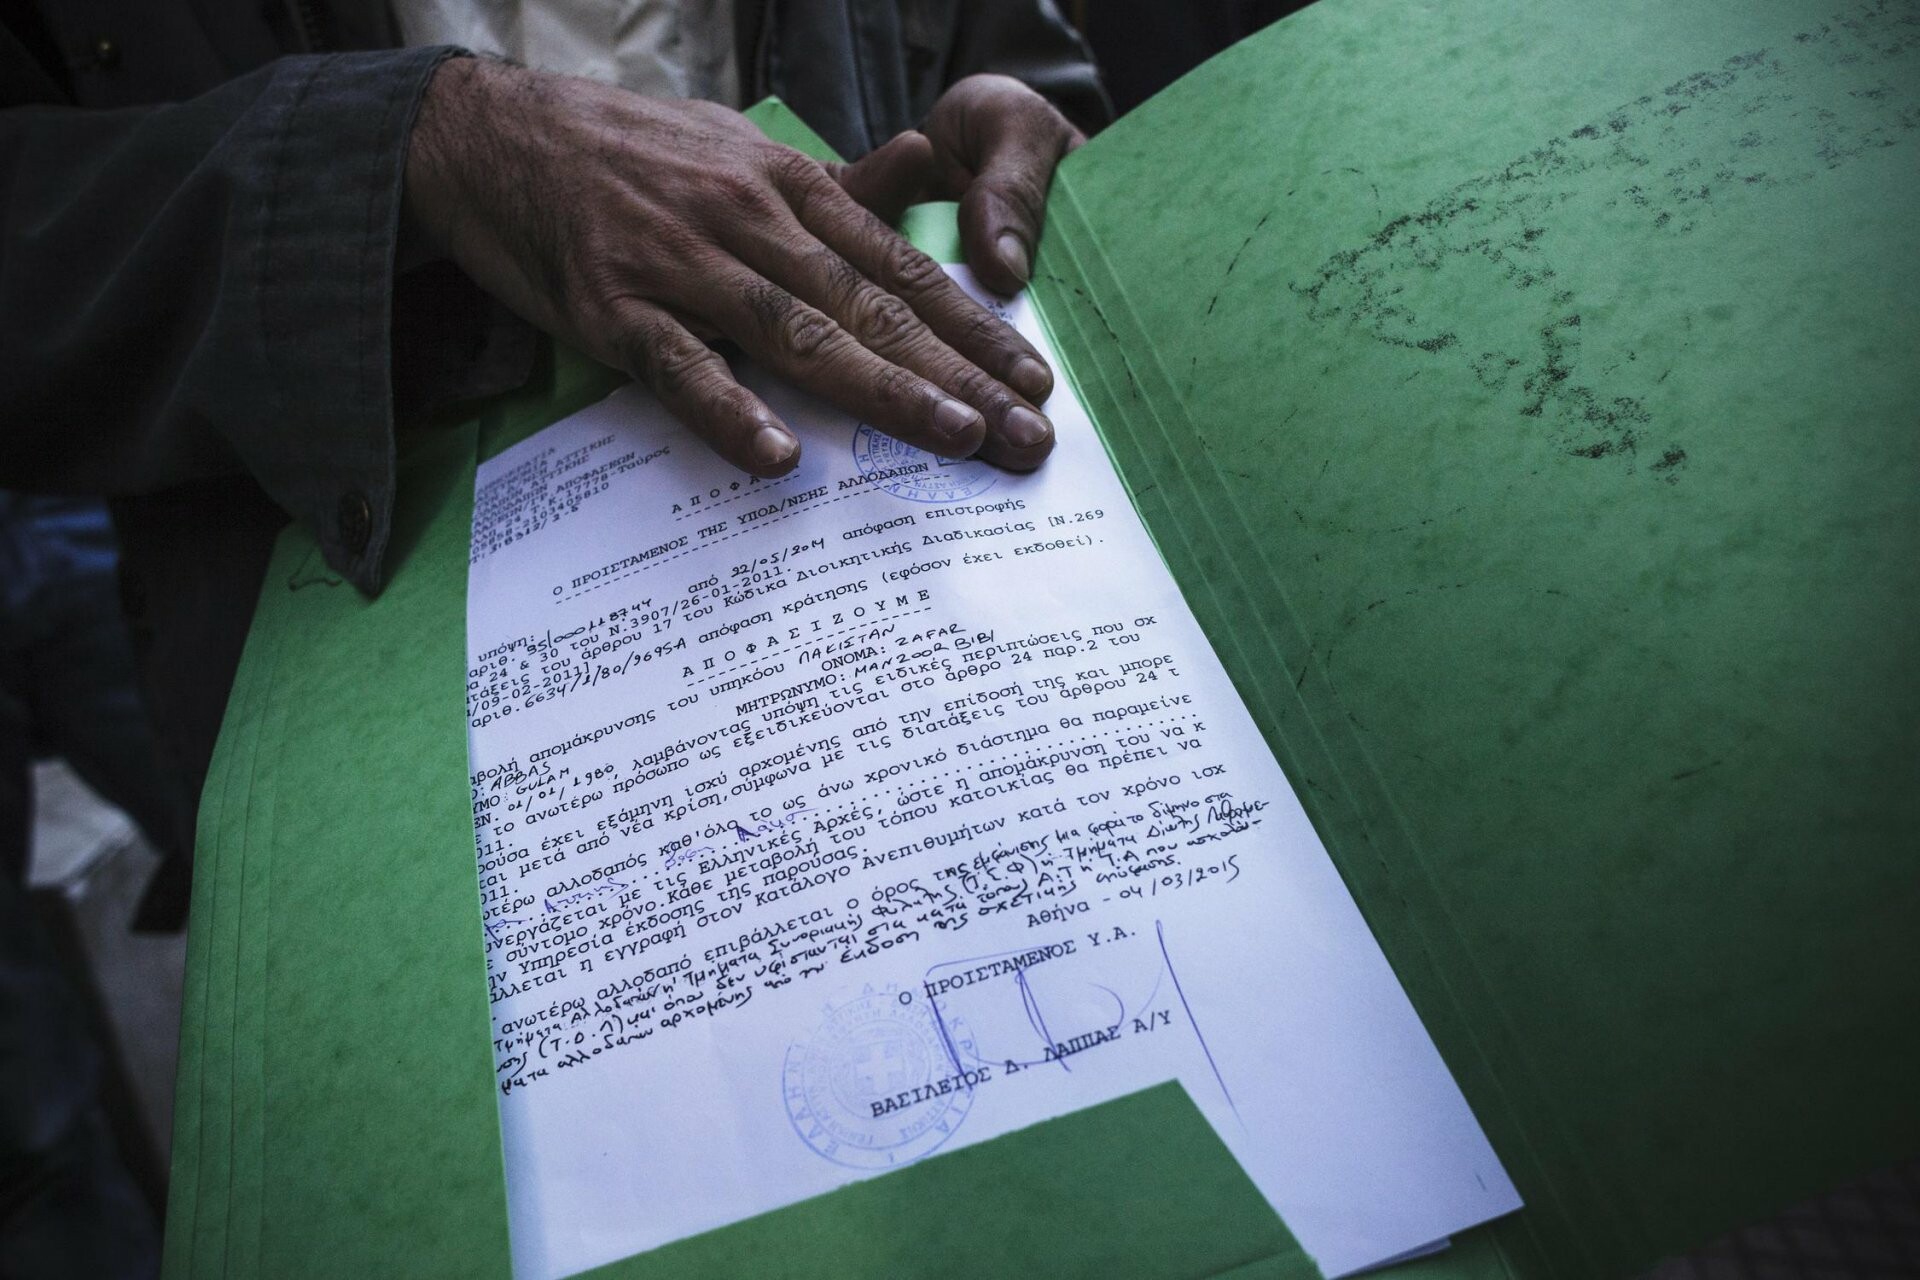 ΑΤΤΙΚΗΣ
ΑΤΤΙΚΗΣ
ΑΠΟΦΑΣΕΩΝ
Τ.Κ.17778-Ταύρος
2103405810
Α Π Ο Φ Α
Ο ΠΡΟΙΣΤΑΜΕΝΟΣ ΤΗΣ ΥΠΟΔ/ΝΣΗΣ ΑΛΛΟΔΑΠΩΝ
υπόψη:
αριθ. 95/000118744 από 22/05/2014 απόφαση επιστροφής
24 & 30 του Ν.3907/26-01-2011.
του άρθρου 17 του Κώδικα Διοικητικής Διαδικασίας [Ν.269
/09-02-2011]
αριθ. 6634/1/80/9695Α απόφαση κράτησης (εφόσον έχει εκδοθεί).
Α Π Ο Φ Α Σ Ι Ζ Ο Υ Μ Ε
βολή απομάκρυνσης του υπηκόου ΠΑΚΙΣΤΑΝ
ABBAS ΟΝΟΜΑ: ZAFAR
ΥΜΟ: GULAM ΜΗΤΡΩΝΥΜΟ: MANZOOR BIBI
ΕΝ. 01/01/1980, λαμβάνοντας υπόψη τις ειδικές περιπτώσεις που σχ
το ανωτέρω πρόσωπο ως εξειδικεύονται στο άρθρο 24 παρ.2 του
011.
ρούσα έχει εξάμηνη ισχύ αρχομένης από την επίδοσή της και μπορε
ται μετά από νέα κρίση,σύμφωνα με τις διατάξεις του άρθρου 24 τ
011.
ωτέρω αλλοδαπός καθ'όλο το ως άνω χρονικό διάστημα θα παραμείνε
υνεργάζεται με τις Ελληνικές Αρχές, ώστε η απομάκρυνση του να κ
σύντομο χρόνο.Κάθε μεταβολή του τόπου κατοικίας θα πρέπει να
ην Υπηρεσία έκδοσης της παρούσας.
άλλεται η εγγραφή στον κατάλογο Ανεπιθυμήτων κατά τον χρόνο ισχ
ανωτέρω αλλοδαπό επιβάλλεται ο όρος της εμφάνισης μια φορά το δίμηνο στα
Τμήματα Αλλοδαπών ή Τμήματα Συνοριακής Φύλαξης (Τ.Σ.Φ) ή Τμήματα Δίωξης Λαθρομε-
(Τ.Δ.Λ) και όπου δεν υφίστανται στα κατά τόπους Α.Τ ή Τ.Α που ασχολούν-
αλλοδαπών αρχομένης από την έκδοση της σχετικής απόφασης.
Αθήνα - 04/03/2015
Ο ΠΡΟΙΣΤΑΜΕΝΟΣ Υ.Α.
ΒΑΣΙΛΕΙΟΣ Δ. ΛΑΠΠΑΣ Α/Υ